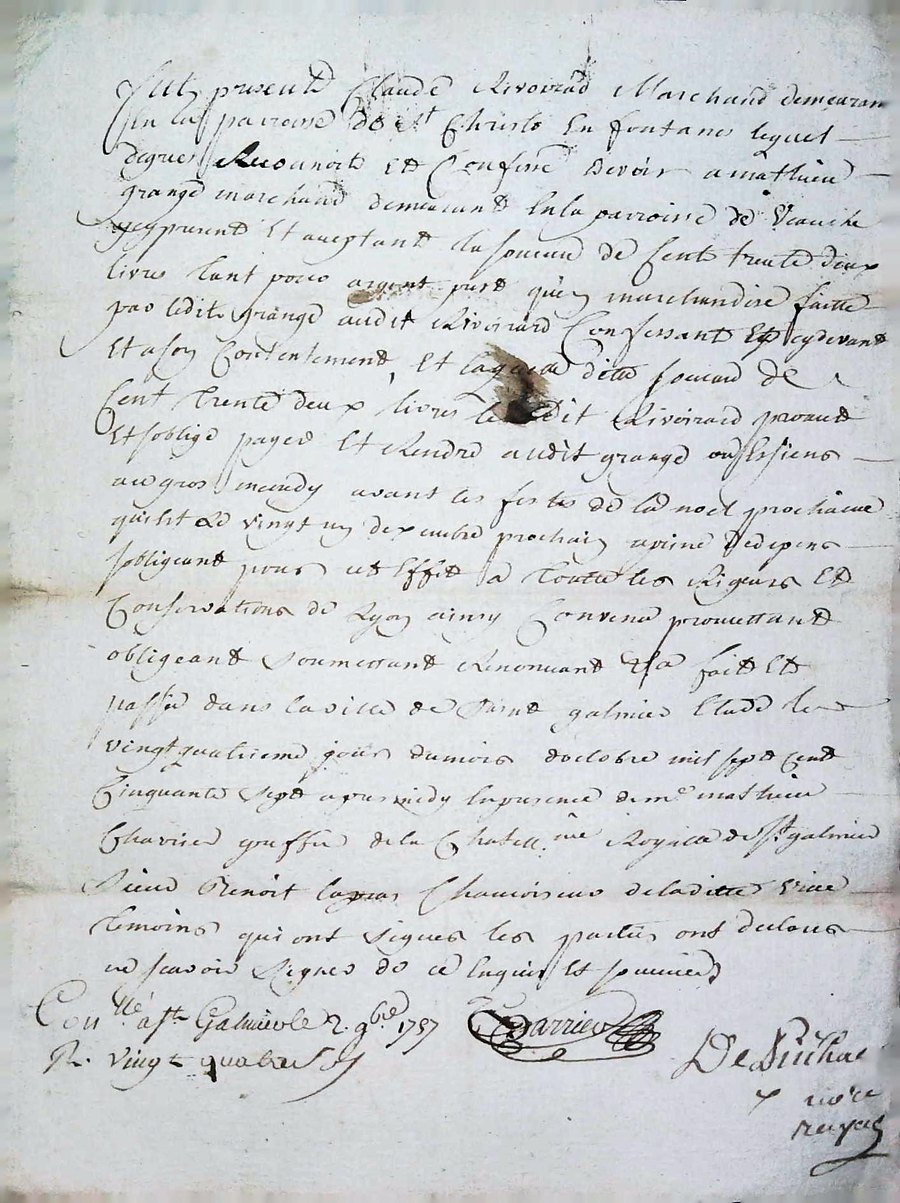 Fut present Claude Rivoirad Marchand demeurant
En la parroisse de St Christo En fontanes lequel
degres Reconnoit Et Confesse devoir a mathieu
grange marchand demeurant En la parroisse de Veauche
icy present Et aceptant la somme de Cent trente deux
livres tant pour argent presté qu'en marchandise faitte
par ledit grange audit Rivoirard Confessant cy devant
Et a son Contentement, Et laquelle ditte somme de
Cent trente deux livres ledit Rivoirard promet
Et s'oblige payer Et Rendre audit grange ou Es siens
avant les festes de la noel prochaine
qui est le vingt un dexcembre prochain a peine de depens
s'obligeant pour cet Effet a toutes les Rigeurs Et
Conservations de Lyon ainsy Convenu promettant
obligeant Soumettant Renonceant &a fait Et
passé dans la ville de Saint galmier Etude le
vingt quatrieme jour du mois d'octobre mil sept cent
Cinquante Sept apres midy En presence de me mathieu
greffier de la Chatell.nie Royalle de St galmier
Sieur Benoit Chamoiseur de laditte ville
temoins qui ont Signés les parties ont declaré
ne scavoir Signer de ce Enquis Et sommées
Con.llé a St Galmier le 2. 9bre 1757
R. vingt quatre sols
De Puihac
nore
royal